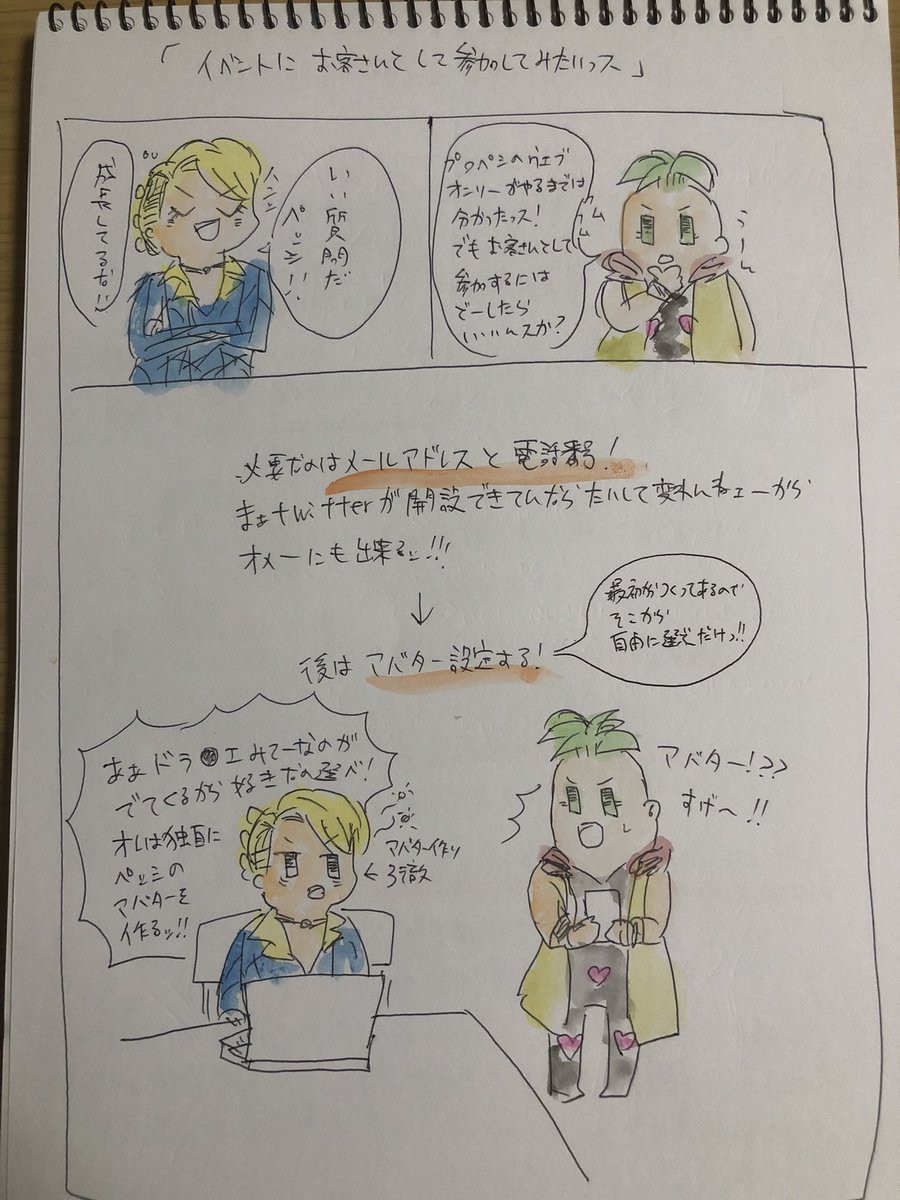 「イベントに お客さんとして参加してみたいっス」
プロペシのウェブ
オンリーがやるまでは
分かったっス!
でもお客さんとして
参加するには
どーしたら
いいんスか?
うーん
いい質問だ
ペッシ!!
成長してるな!!
必要なのはメールアドレスと電話番号!
まぁtwitterが開設できてんならたいして変わんねェーから
オメーにも出来るッ!!!
↓
後はアバター設定する!
最初からつくってあるので
そこから
自由に選ぶだけっ!!
あぁドラ●エみてーなのが
でてくるから好きなの選べ!
オレは独自に
ペッシの
アバターを
作るッ!!
←アバター作り
3徹
アバター!??
すげ〜!!